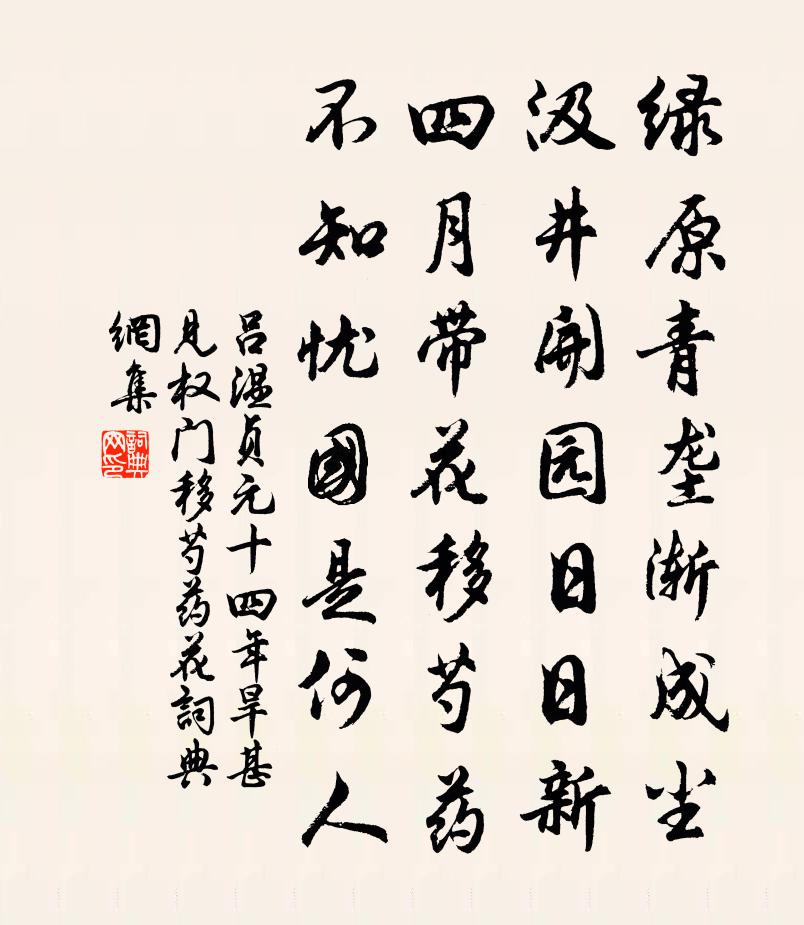 绿原青垄渐成尘
汲井开园日日新
四月带花移芍药
不知忧國是何人
吕温贞元十四年旱甚
见权门移芍药花詞典
網集
詞典
网印